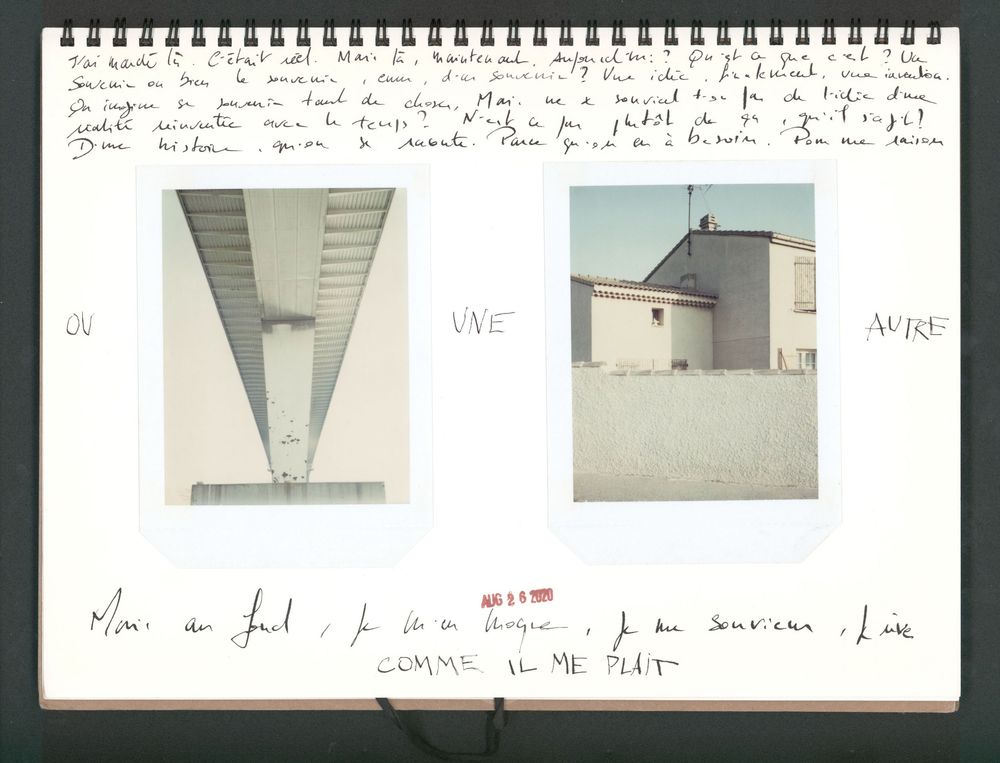 J'ai marché là. C'était réel. Mais là, maintenant. Aujourd'hui? Qu'est ce que c'est? Un
souvenir ou bien le souvenir, d'un souvenir? Une idée, finalement, une invention.
On imagine se souvenir tant de choses, Mais ne se souvient t-on pas de l'idée d'une
réalité réinventée avec le temps? N'est ce pas plutôt de ça, qu'il s'agit?
D'une histoire, qu'on se raconte. Parce qu'on en à besoin. Pour une raison
OU UNE AUTRE
AUG 26 2020
Mais au fond, je m'en moque, je me souviens, je rêve
COMME IL ME PLAIT